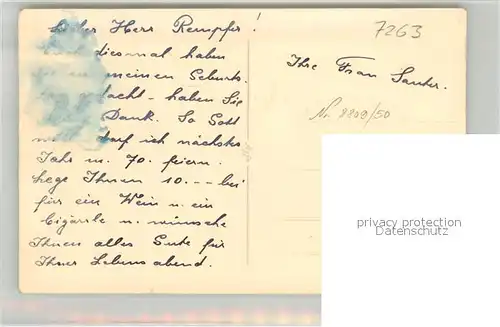 Lieber Herr Rempfer!
diesmal haben
meinen Geburts.
dacht - haben Sie
Dank. So Gott
darf ich nächstes
Jahr m. 70. feiern.
lege Ihnen 10.-- bei
für ein Wein u. ein
Cigärrle u. wünsche
Ihnen alles Gute für
Ihren Lebensabend.
7263
Ihre Frau Sauter.
Nr. 8809/50
privacy protection
Datenschutz